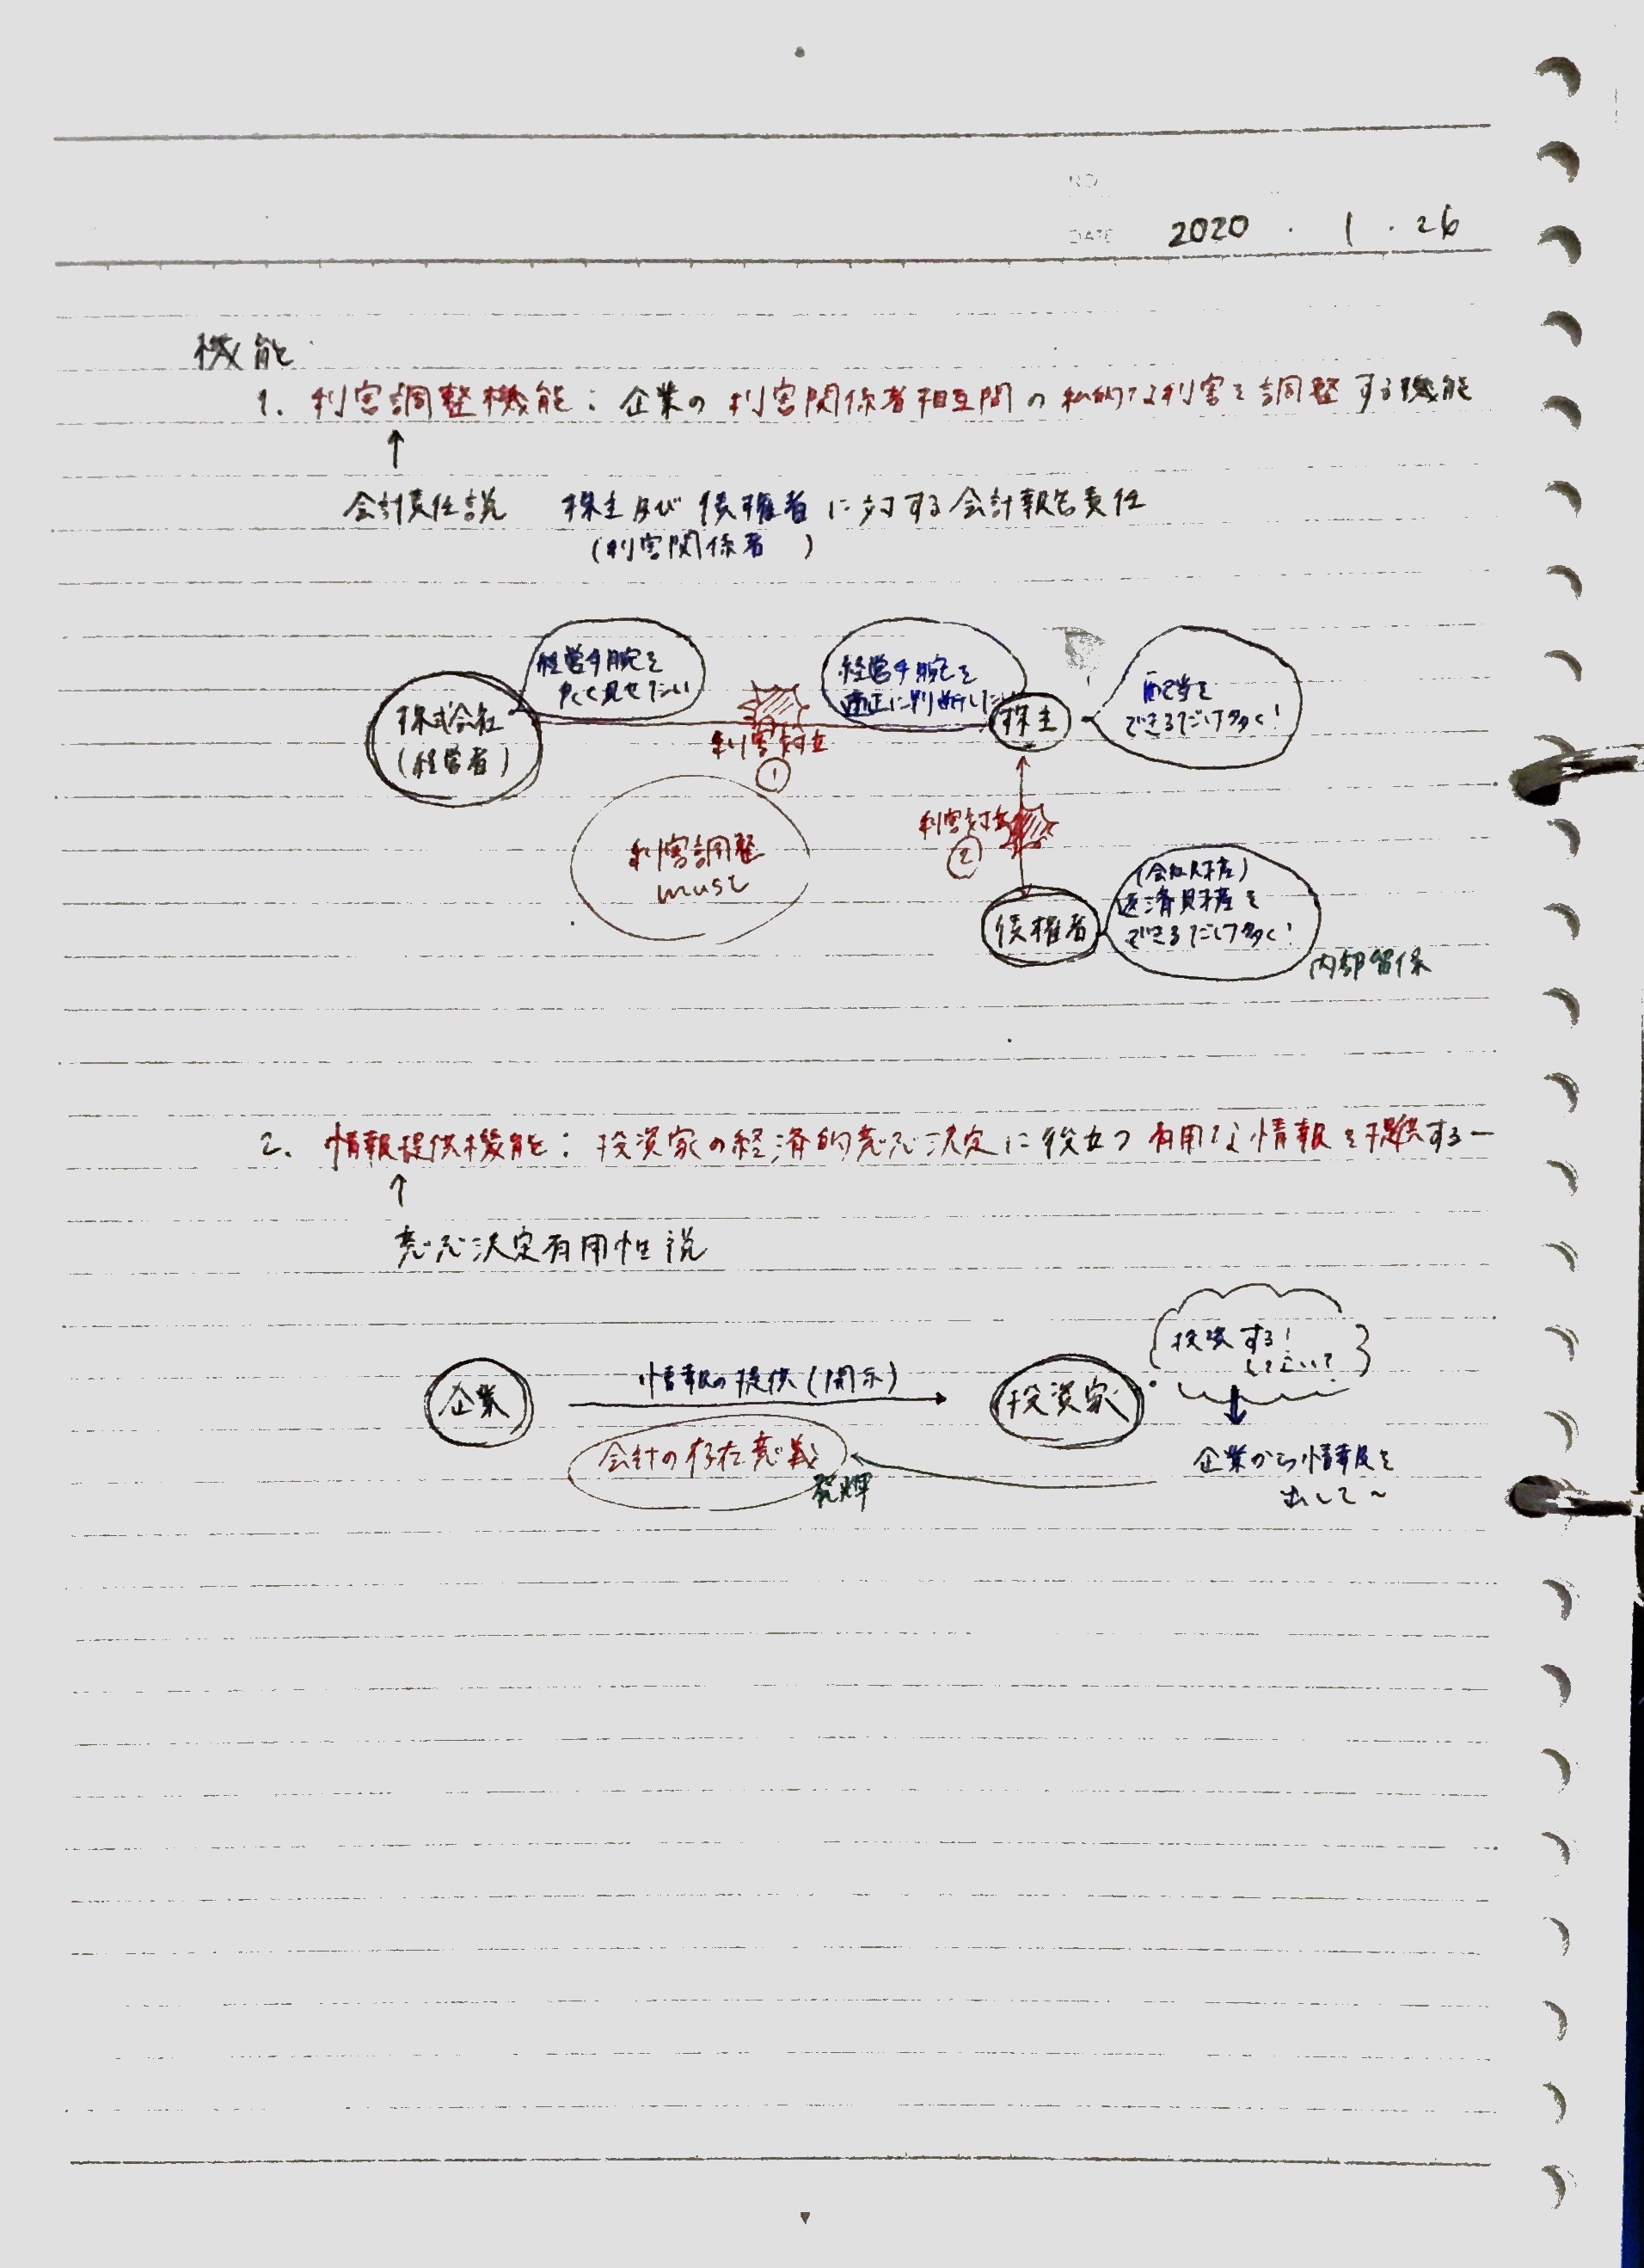 NO.
DATE 2020 . 1 . 26
機能
1. 利害調整機能：企業の利害関係者相互間の私的な利害を調整する機能
↑
会計責任説　株主及び債権者に対する会計報告責任
（利害関係者　）
経営手腕を
良く見せたい
株式会社
（経営者）
利害対立
①
経営手腕を
適正に判断したい
株主
配当を
できるだけ多く！
利害調整
must
利害対立
②
債権者
（会社財産）
返済財産を
できるだけ多く！
内部留保
2. 情報提供機能：投資家の経済的意思決定に役立つ有用な情報を提供するー
↑
意思決定有用性説
企業
情報の提供（開示）
投資家
投資する！
会計の存在意義
発揮
企業から情報を
出して～